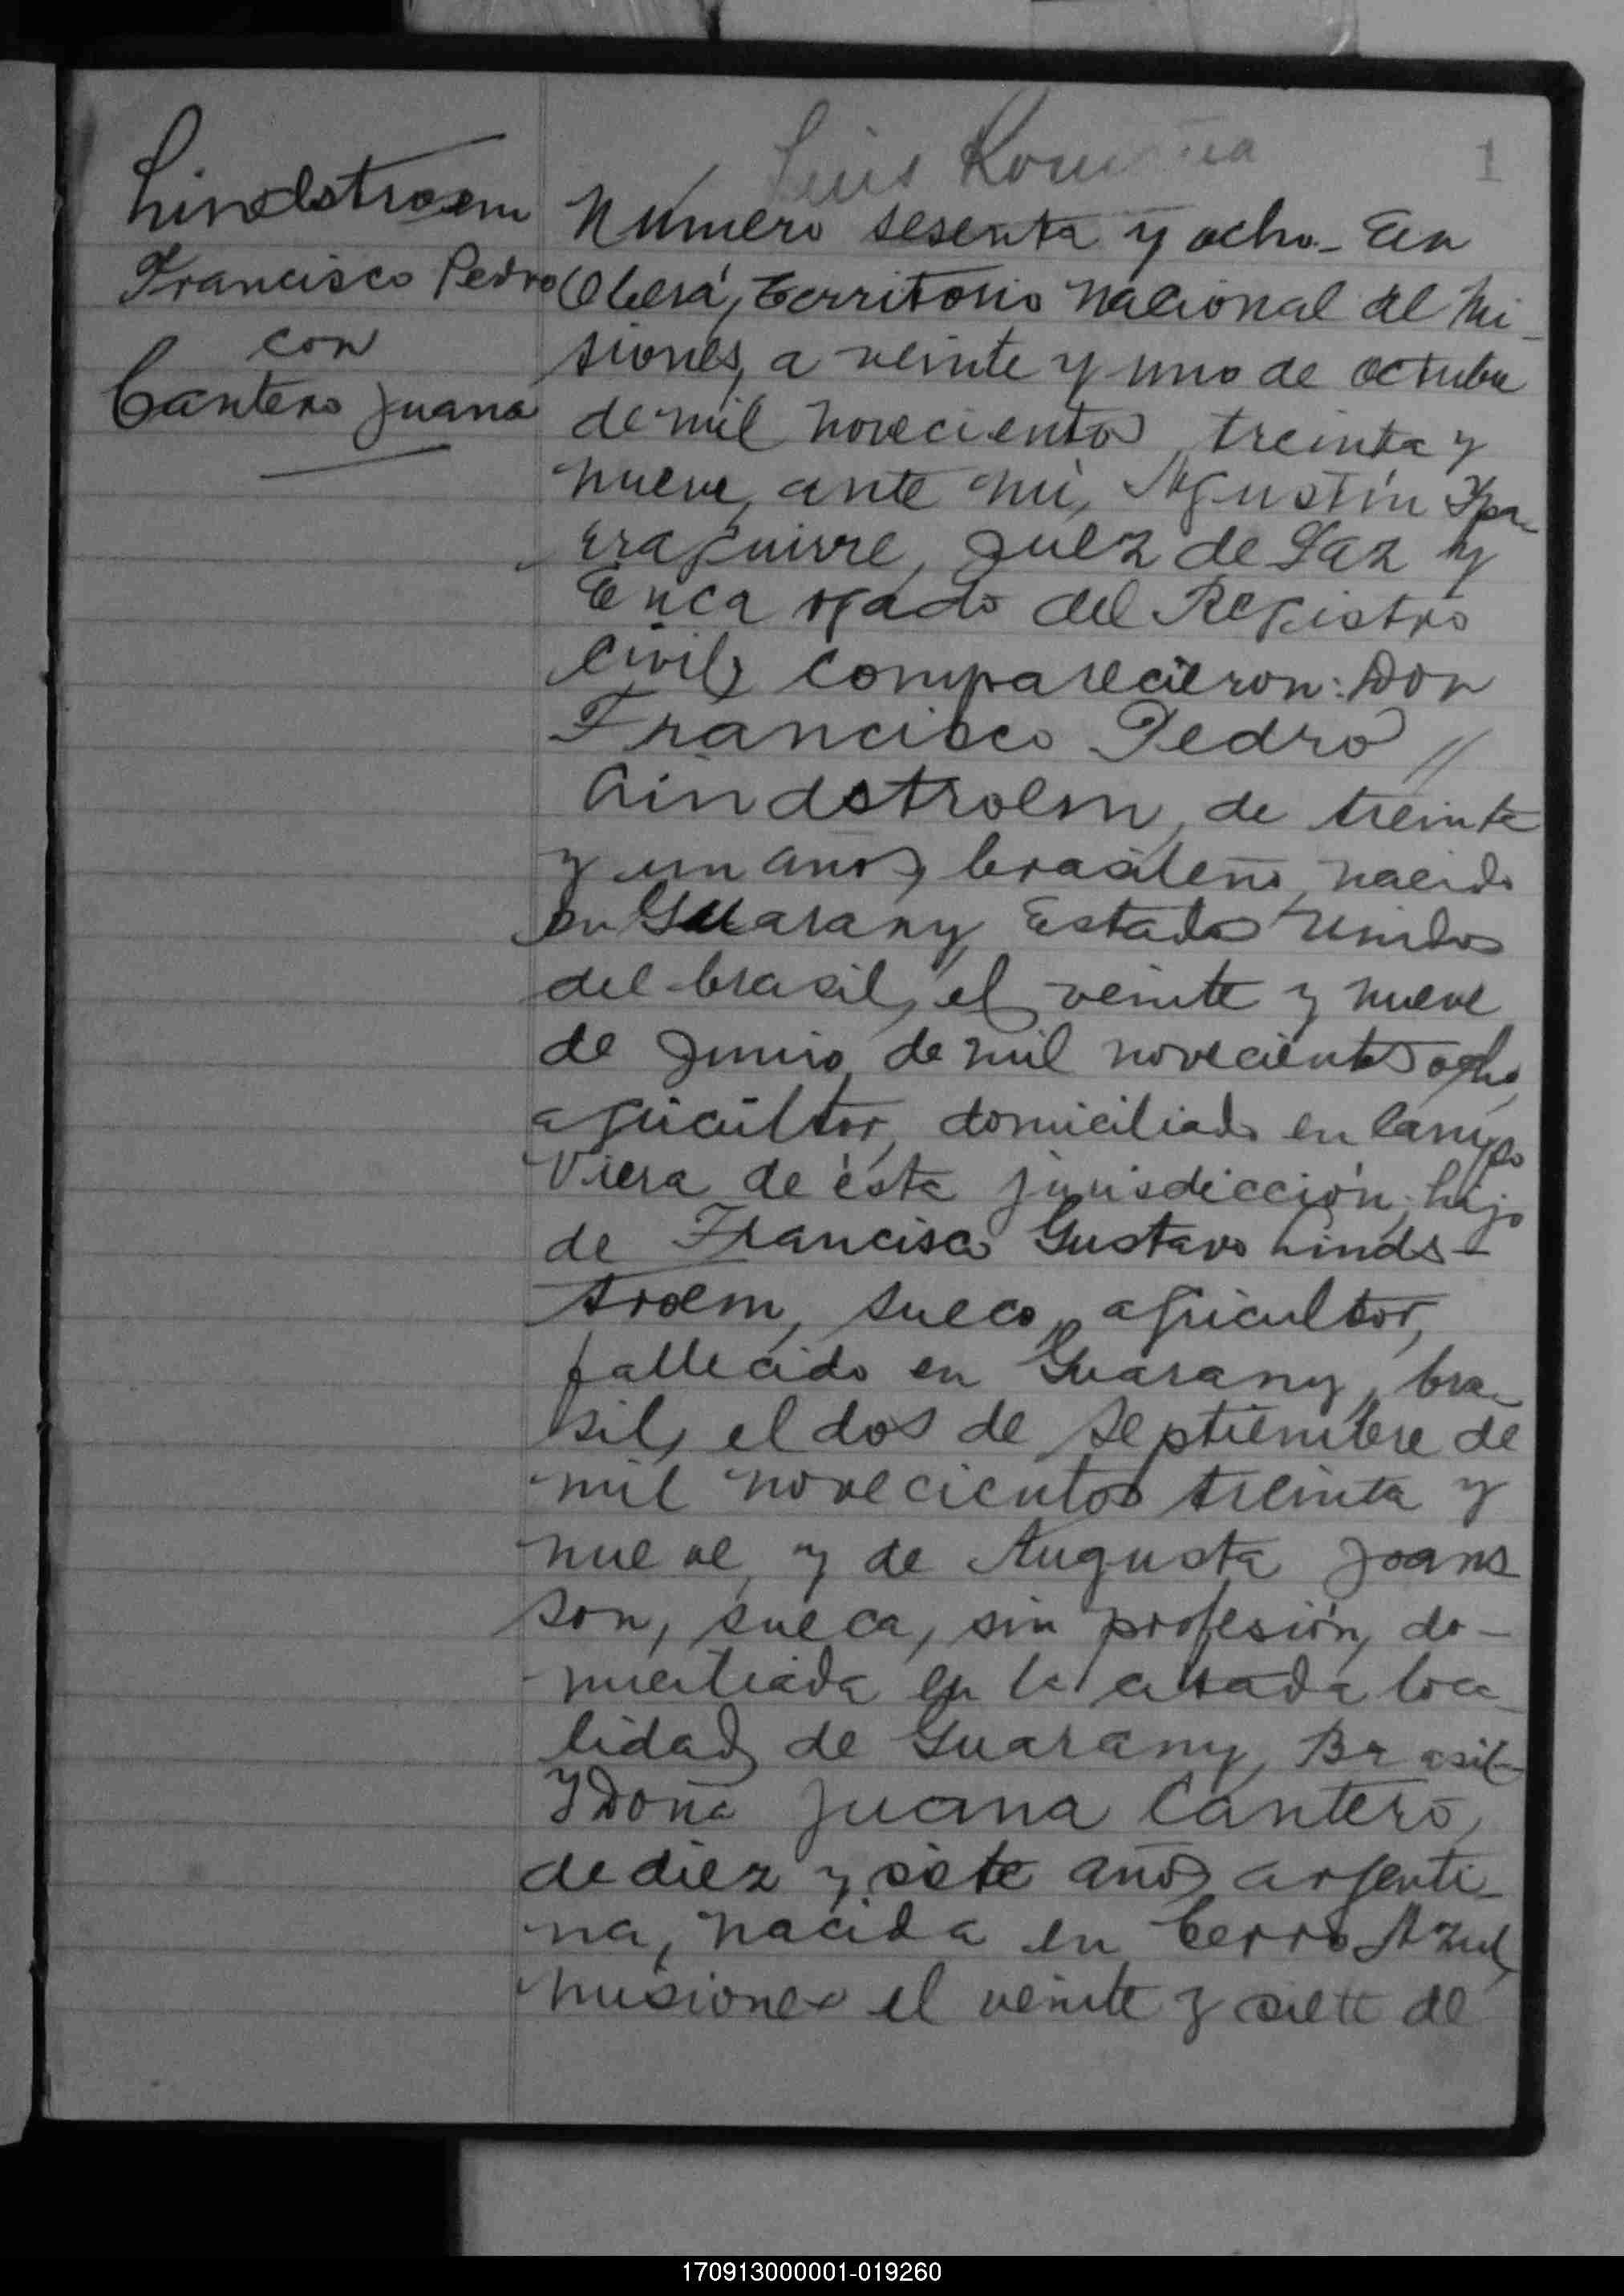 Lindstroem
Francisco Pedro
con
Cantero Juana
Luis
1
Número sesenta y ocho - En
Oberá, territorio Nacional de Mi-
siones, a veinte y uno de octubre
de mil novecientos treinta y
nueve, ante mí, Agustín Ypa-
rraguirre, Juez de Paz y
Encargado del Registro
Civil, comparecieron: Don
Francisco Pedro //
Lindstroem, de treinta
y un años, brasileño, nacido
en Guarany, Estados Unidos
del brasil, el veinte y nueve
de Junio de mil novecientos ocho,
agricultor, domiciliado en Campo
Viera de ésta jurisdicción, hijo
de Francisco Gustavo Linds-
troem, sueco, agricultor,
fallecido en Guarany, bra-
sil, el dos de septiembre de
mil novecientos treinta y
nueve, y de Augusta Joans
son, sueca, sin profesión, do-
miciliada en la citada loca-
lidad de Guarany, Brasil-
Y Doña Juana Cantero,
de diez y siete años, argenti-
na, nacida en Cerro Azul,
misiones el veinte y siete de
170913000001-019260